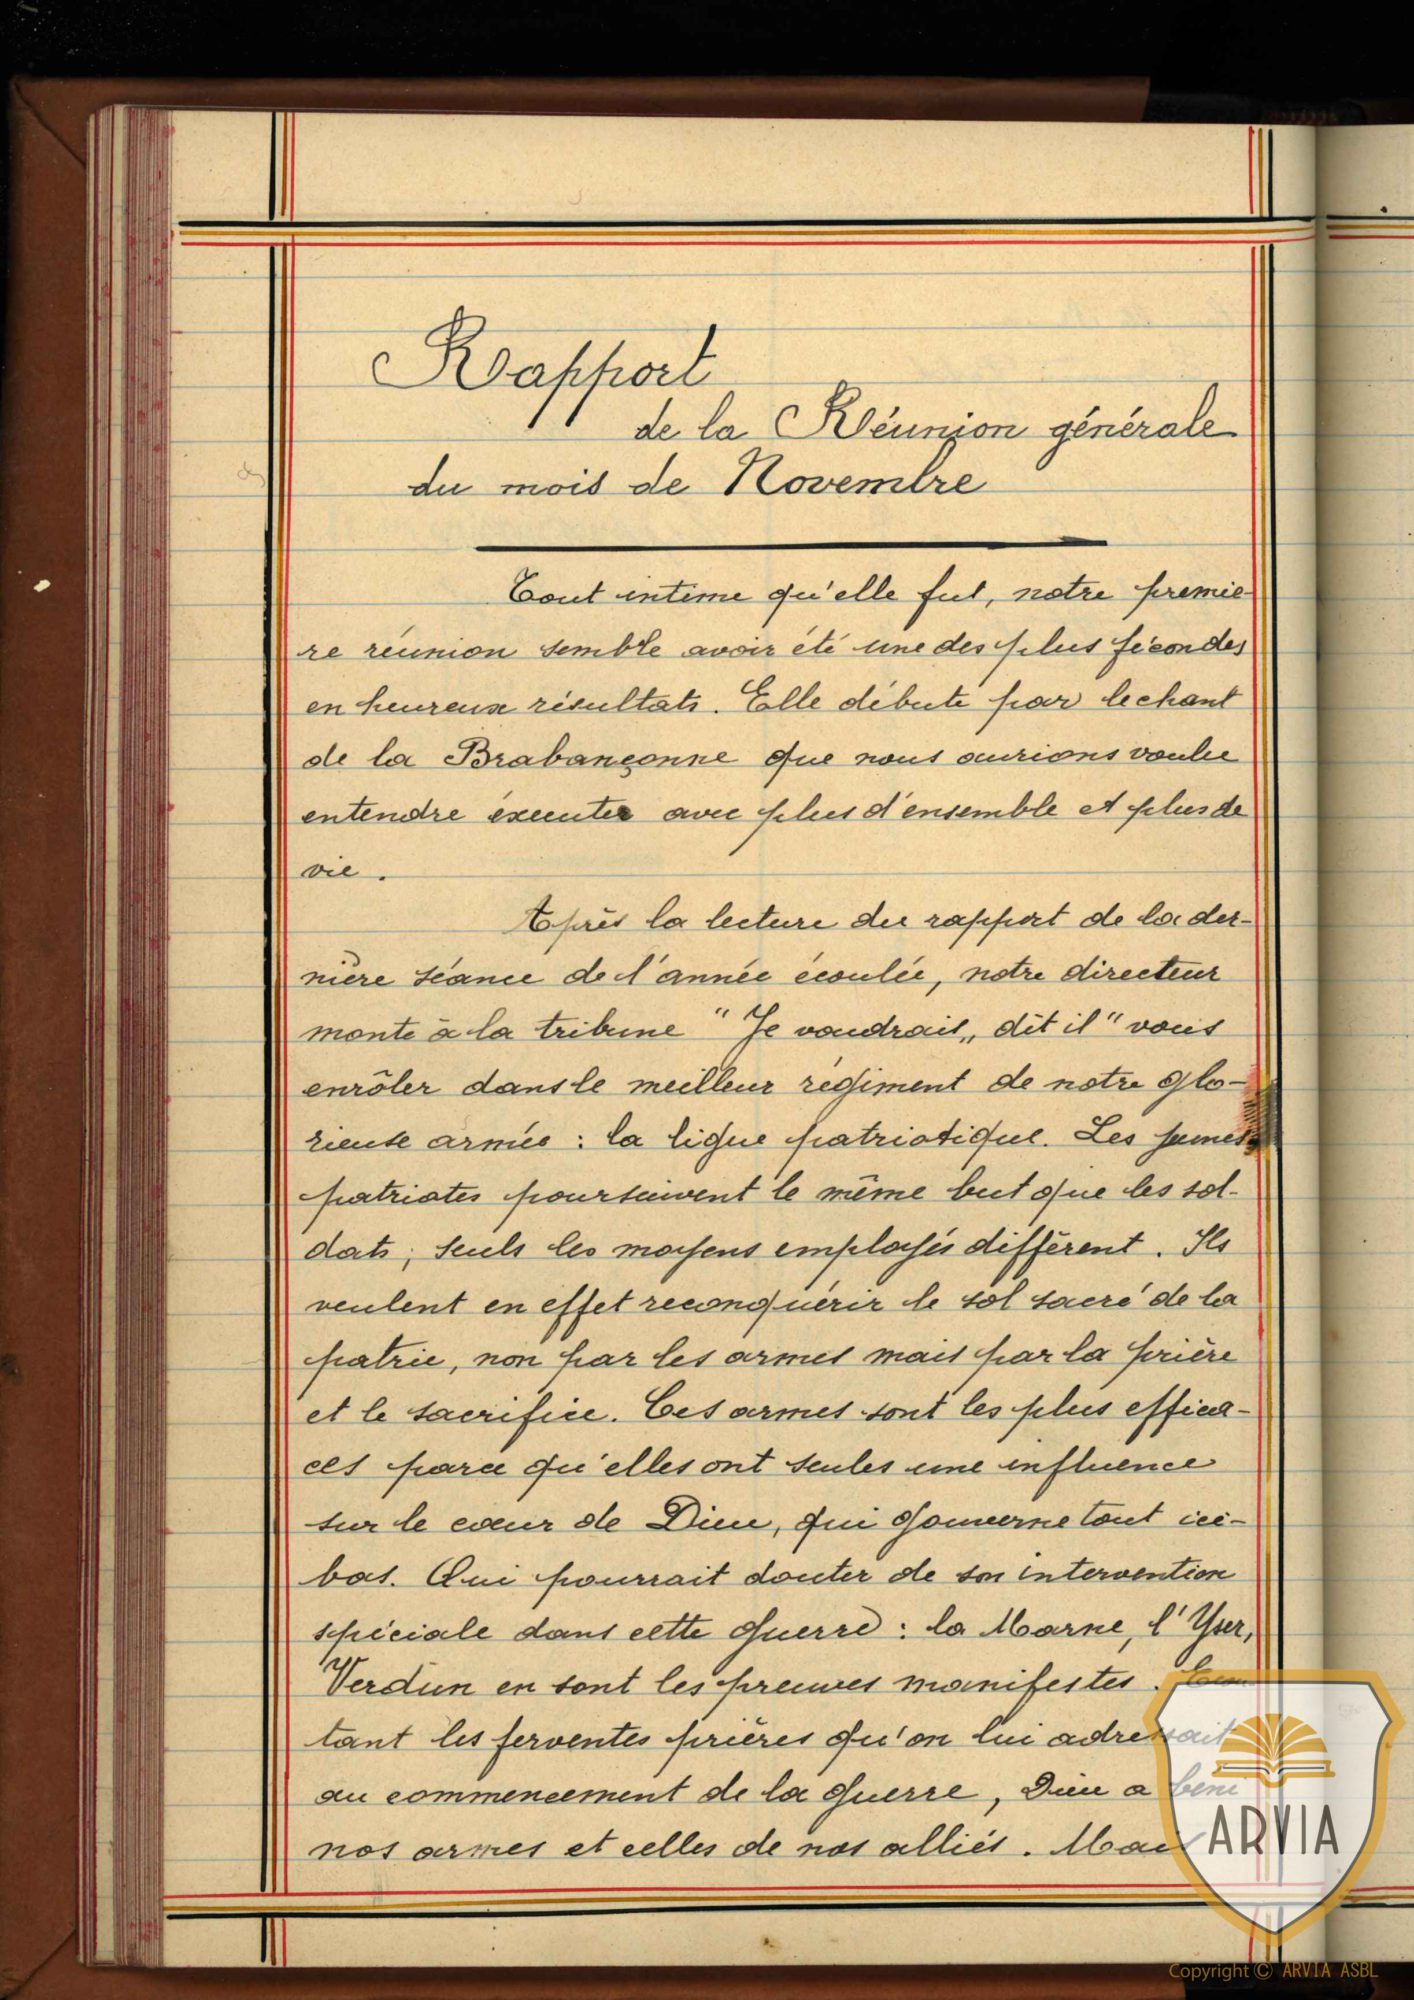 Rapport
de la Réunion générale
du mois de Novembre
Tout intime qu'elle fut, notre premiè
re réunion semble avoir été une des plus fécondes
en heureux résultats. Elle débute par le chant
de la Brabançonne que nous aurions voulu
entendre éxecuter avec plus d'ensemble et plus de
vie.
Après la lecture du rapport de la der-
nière séance de l'année écoulée, notre directeur
monte à la tribune " Je voudrais,, dit il " vous
enrôler dans le meilleur régiment de notre glo-
rieuse armée : la ligue patriotique. Les jeunes
patriotes poursuivent le même but que les sol-
dats ; seuls les moyens employés diffèrent. Ils
veulent en effet reconquérir le sol sacré de la
patrie, non par les armes mais par la prière
et le sacrifice. Ces armes sont les plus effica-
ces parce qu'elles ont seules une influence
sur le cœur de Dieu, qui gouverne tout ici-
bas. Qui pourrait douter de son intervention
spéciale dans cette guerre : la Marne, l'Yser,
Verdun en sont les preuves manifestes.
tant les ferventes prières qu'on lui adressait
au commencement de la guerre, Dieu a béni
nos armes et celles de nos alliés. Mais
ARVIA
Copyright © ARVIA ASBL